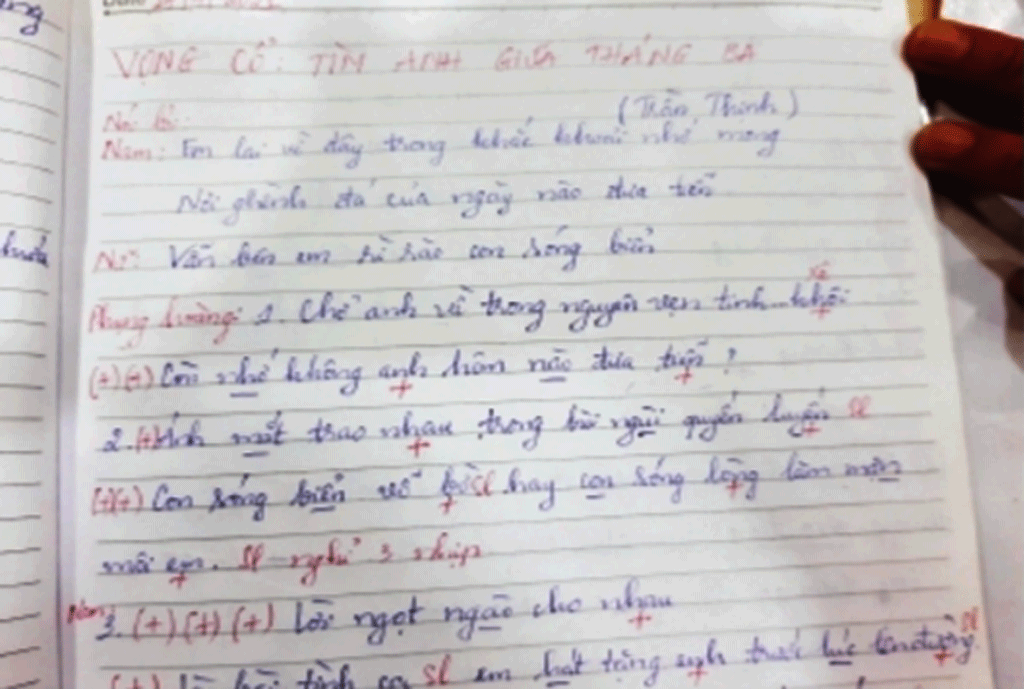 VỌNG CỔ: TÌM ANH GIỮA THÁNG BA
(Trần Thịnh)
Nói lối:
Nam: Em lại về đây trong khắc khoải nhớ mong
Nơi ghềnh đá của ngày nào đưa tiễn
Nữ: Vẫn bên em rì rào con sóng biển
Phụng hoàng: 1. Chờ anh về trong nguyên vẹn tinh... khôi xê
(+) (+) Còn nhớ không anh hôm nào đưa tiễn ?
2. (+) Ánh mắt trao nhau trong bùi ngùi quyến luyến SL
(+) (+) Con sóng biển vỗ bờ SL hay con sóng lòng làm mặn
môi em. SL nghỉ 3 nhịp
Nam: 3. (+) (+) (+) Lời ngọt ngào cho nhau
(+) là bài tình ca SL em hát tặng anh trước lúc lên đường SL